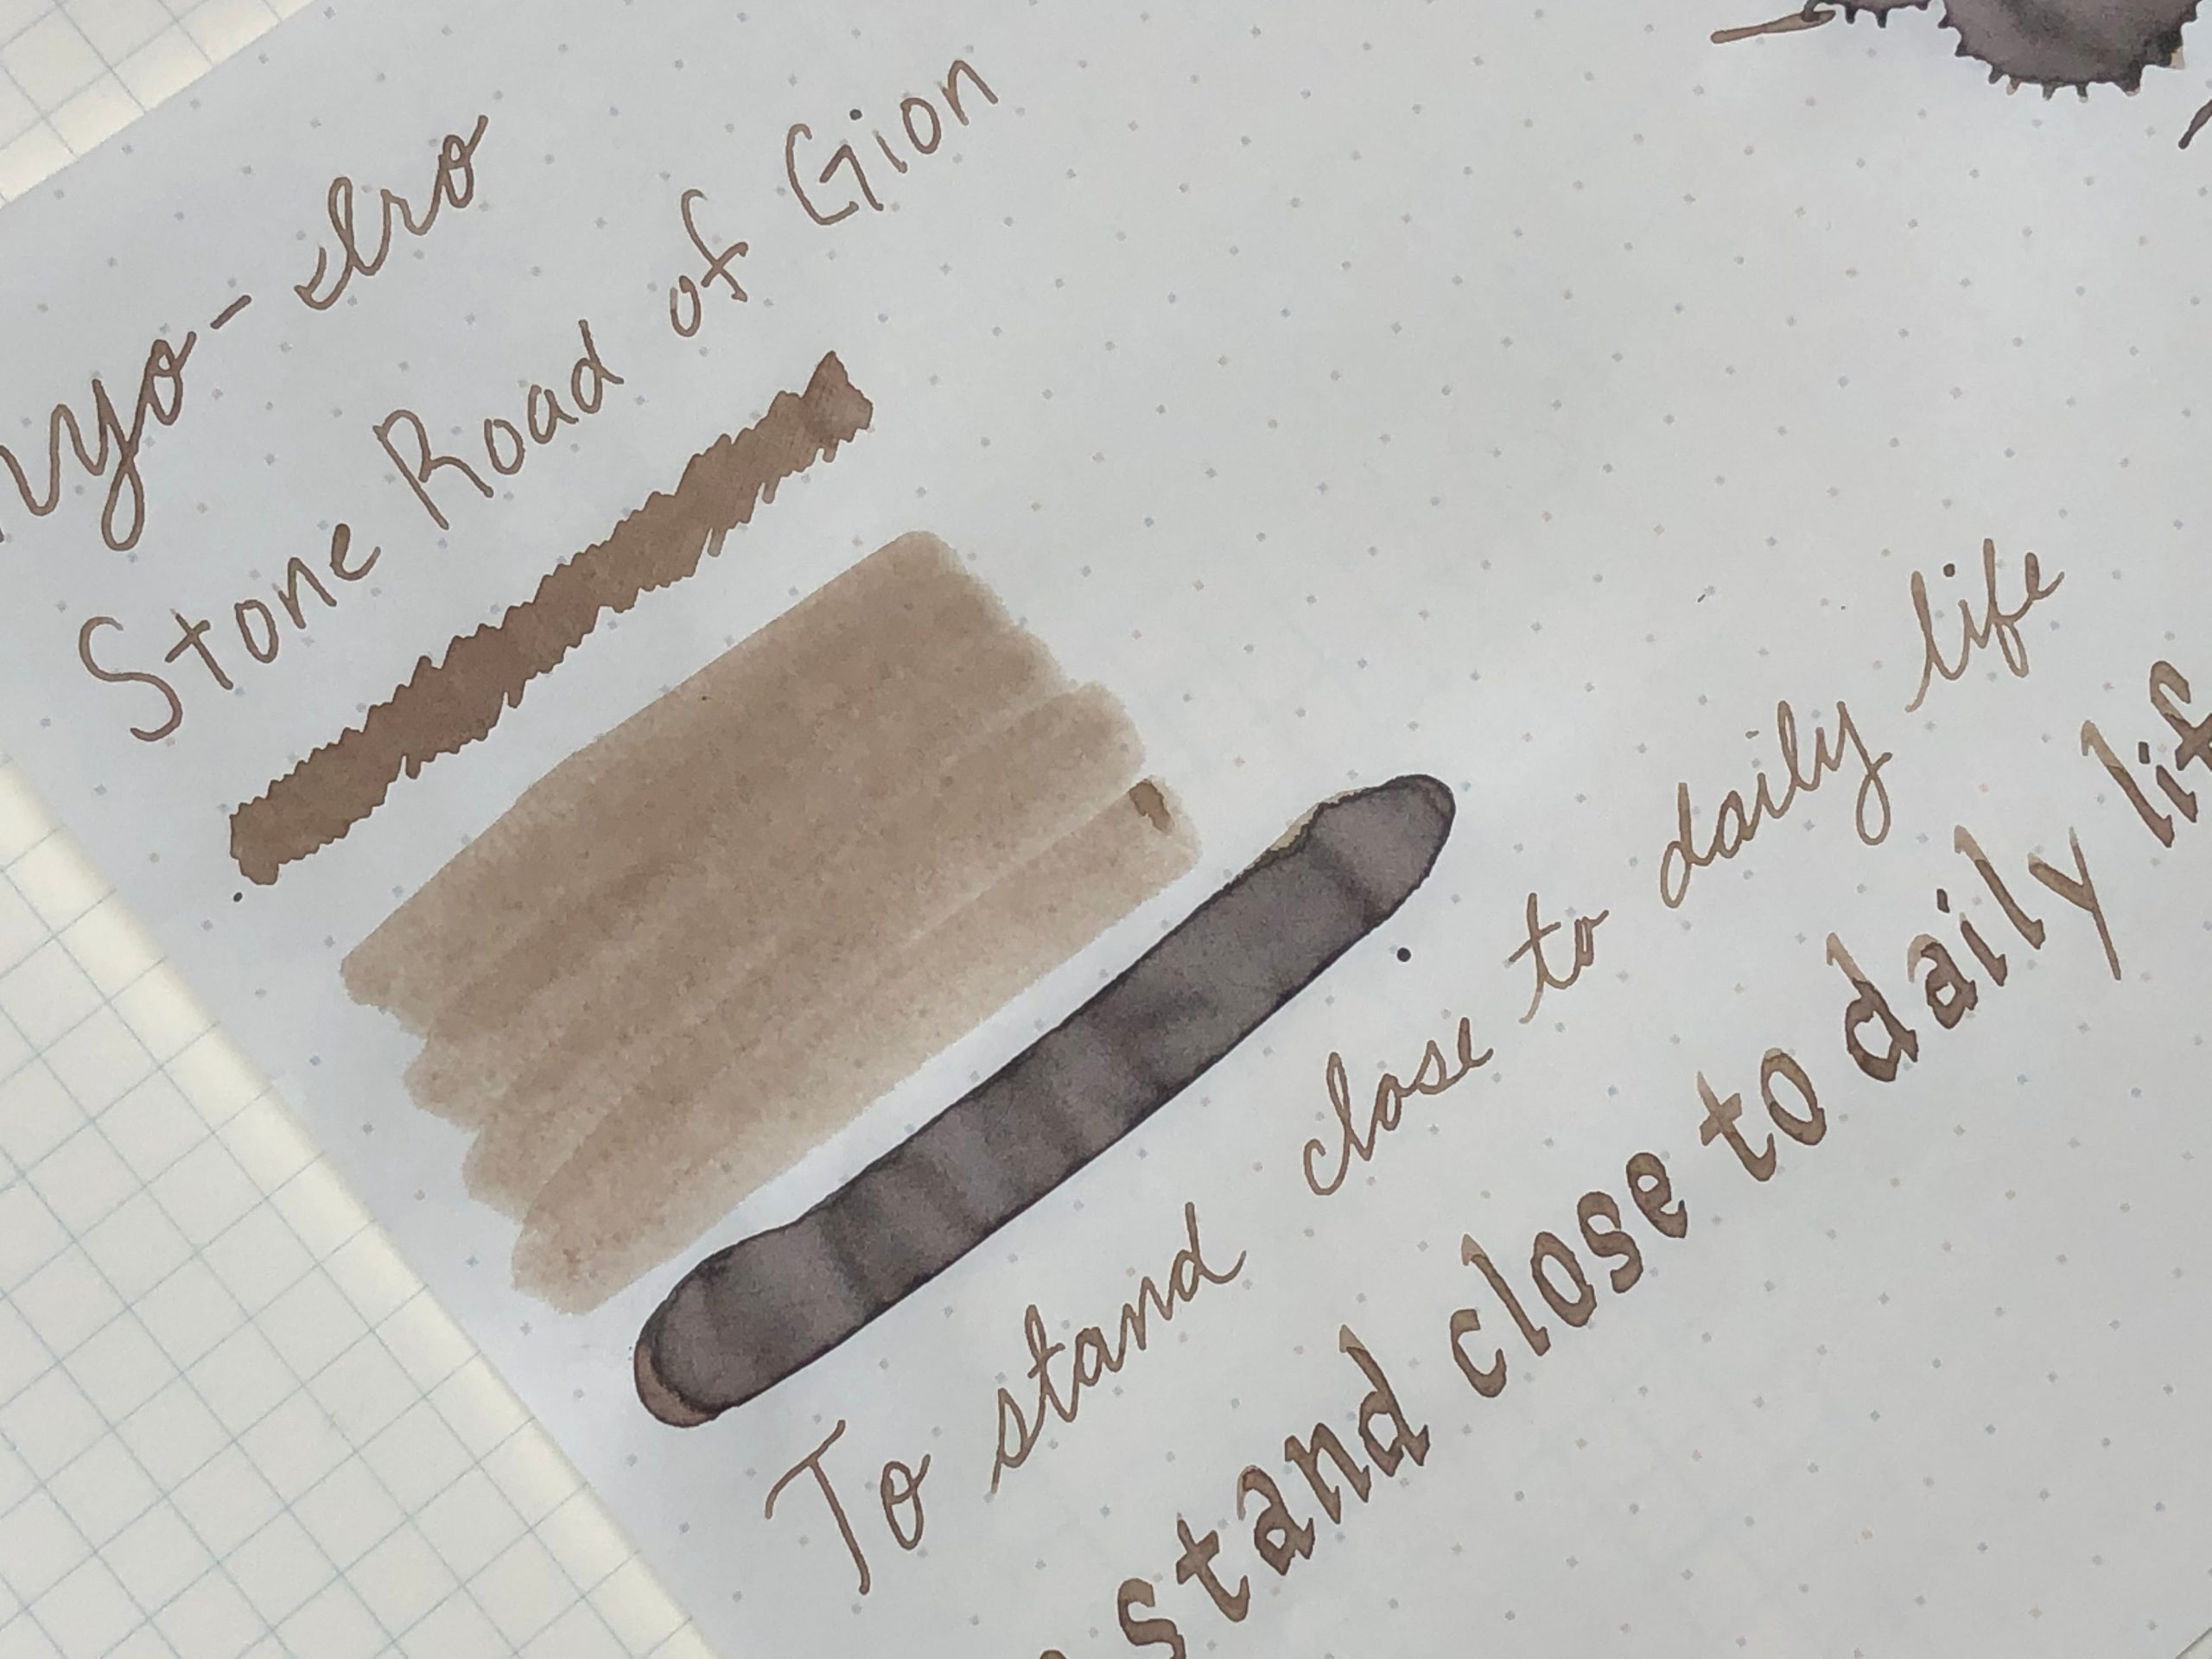 yo-Iro
Stone Road of Gion
To stand close to daily life
stand close to daily lif